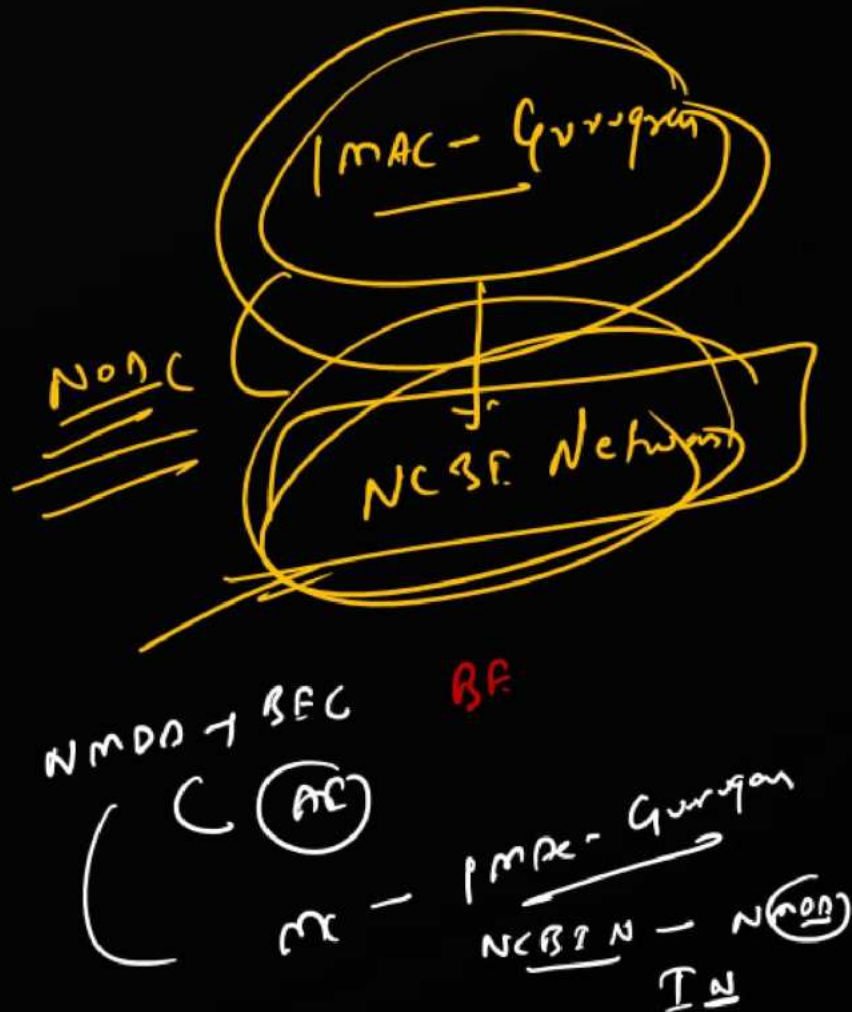 IMAC - Gurugram
NODC
NCBF Network
BF
NMDD → BFC
C AC
MC - IMAC - Gurugram
NCBIN - NMDD
IN